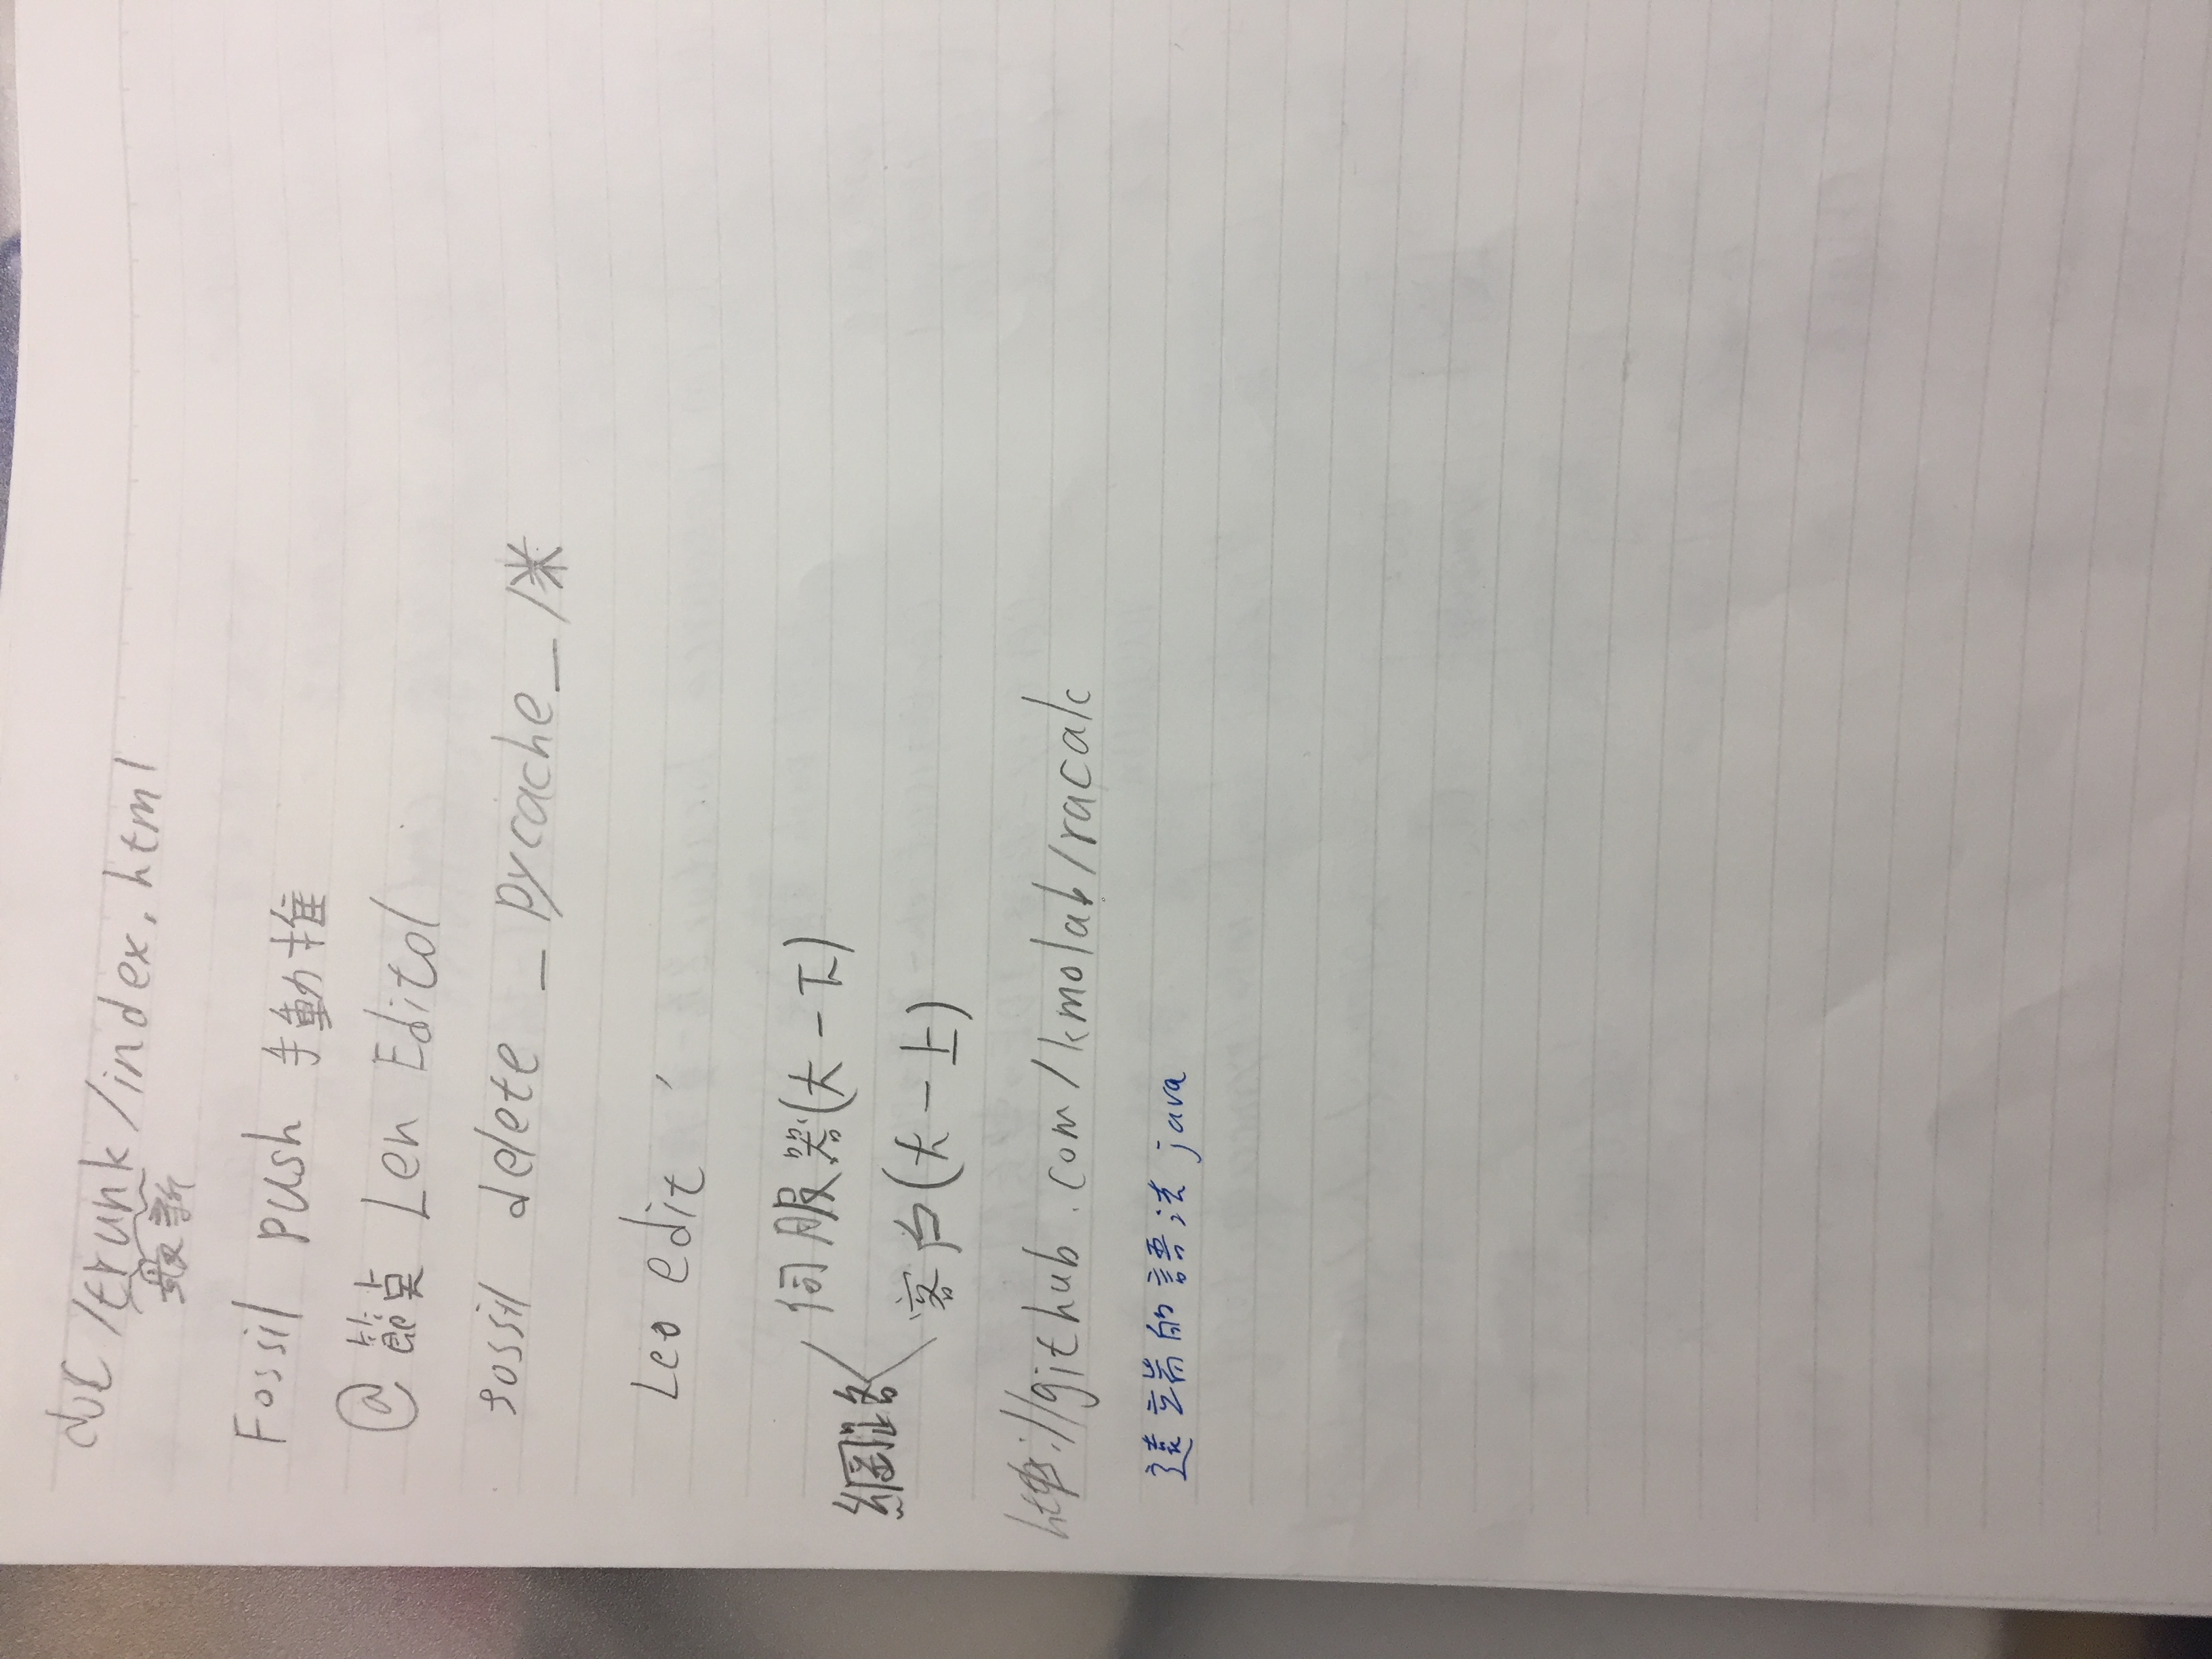 doc /trunk/index.html
最新
Fossil push 手動推
@ 節點 Len Editol
fossil delete _ pycache_ /*
Leo edit
伺服器(大一下)
網路
客户(大一上)
https://github.com/kmolab/racalc
遠端的語法 java